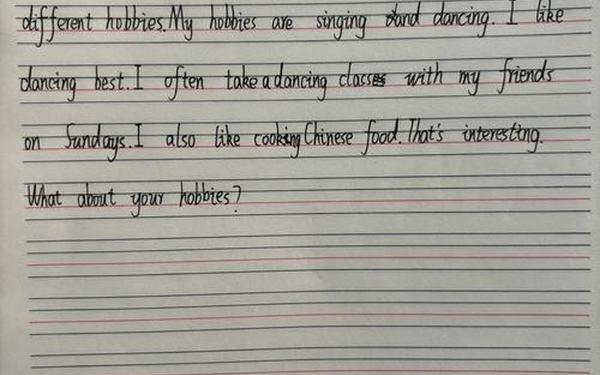 different hobbies. My hobbies are singing and dancing. I like
dancing best. I often take a dancing classes with my friends
on Sundays. I also like cooking Chinese food. That's interesting.
What about your hobbies?